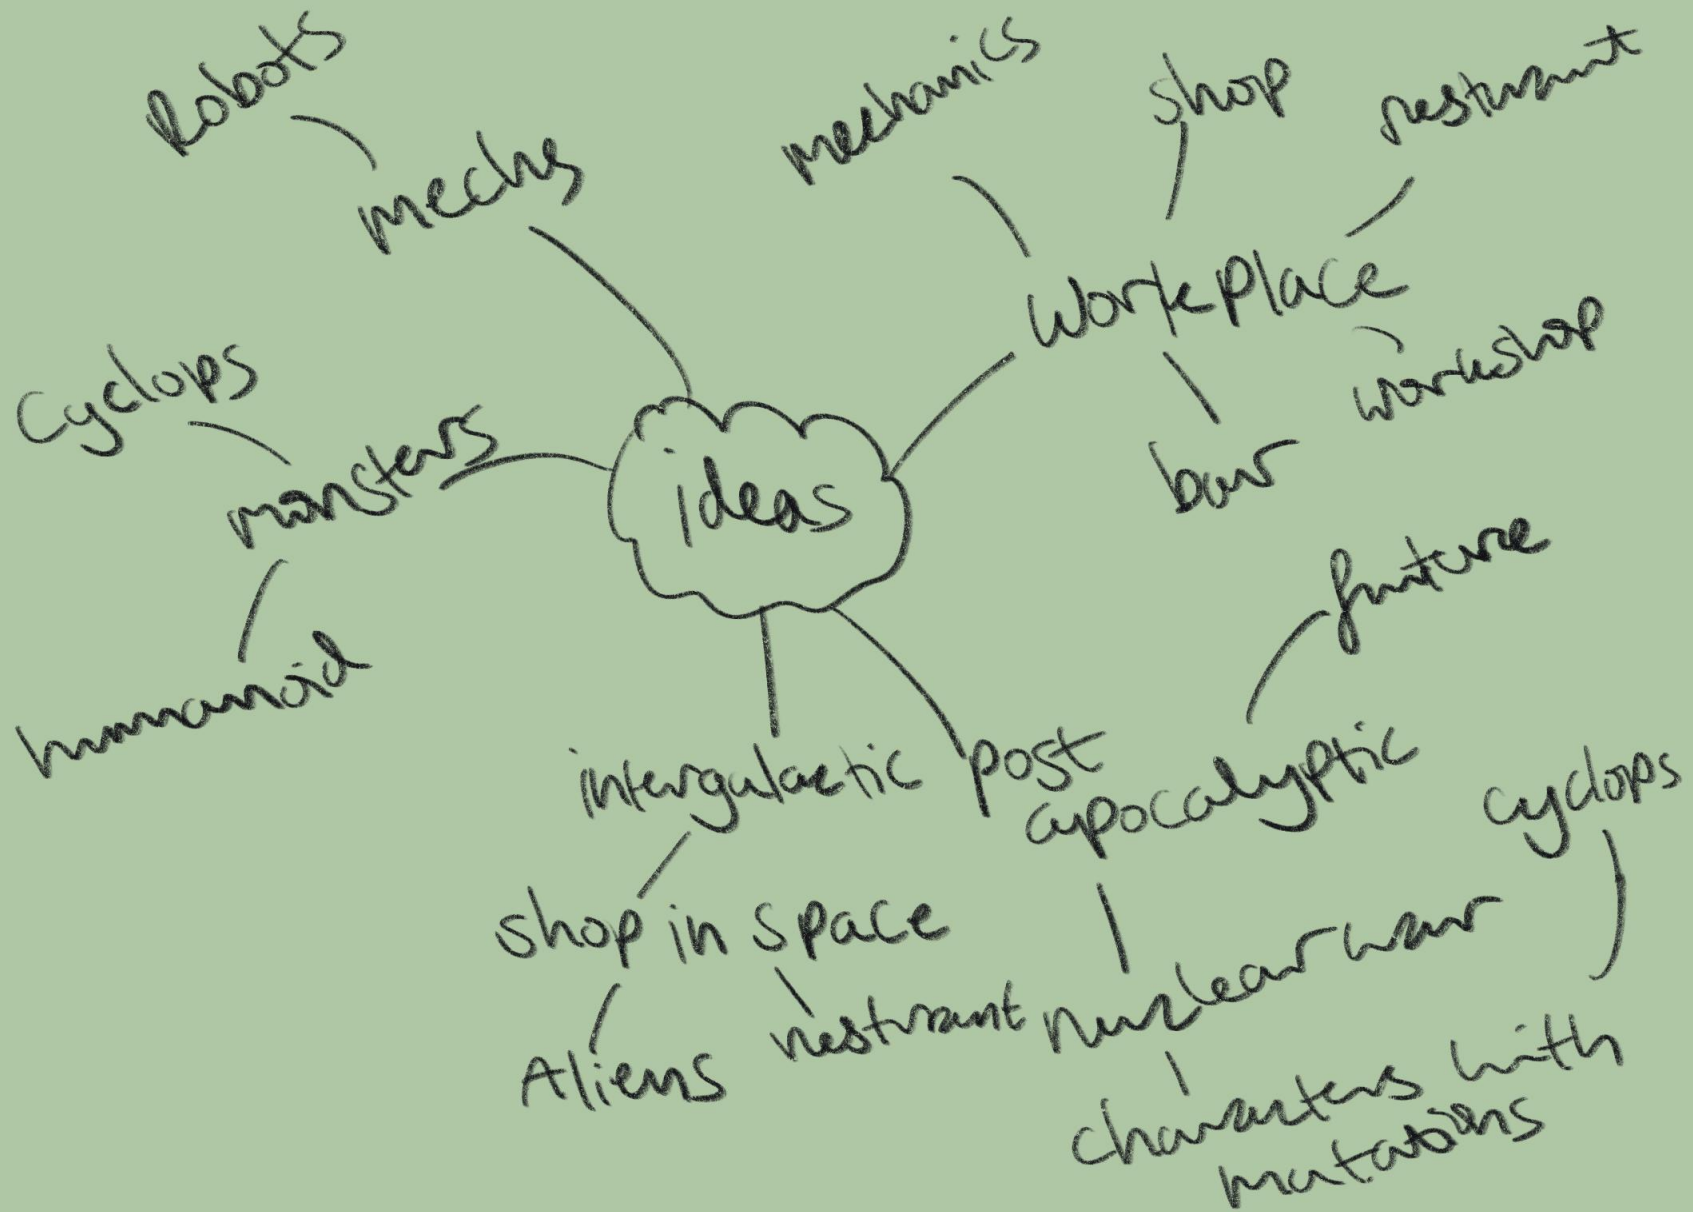 Robots
mechs
mechanics
shop
resturant
workplace
workshop
bar
Cyclops
monsters
humanoid
ideas
future
intergalactic
post
apocalyptic
cyclops
shop in space
Aliens
resturant
nuclear war
characters with
mutations